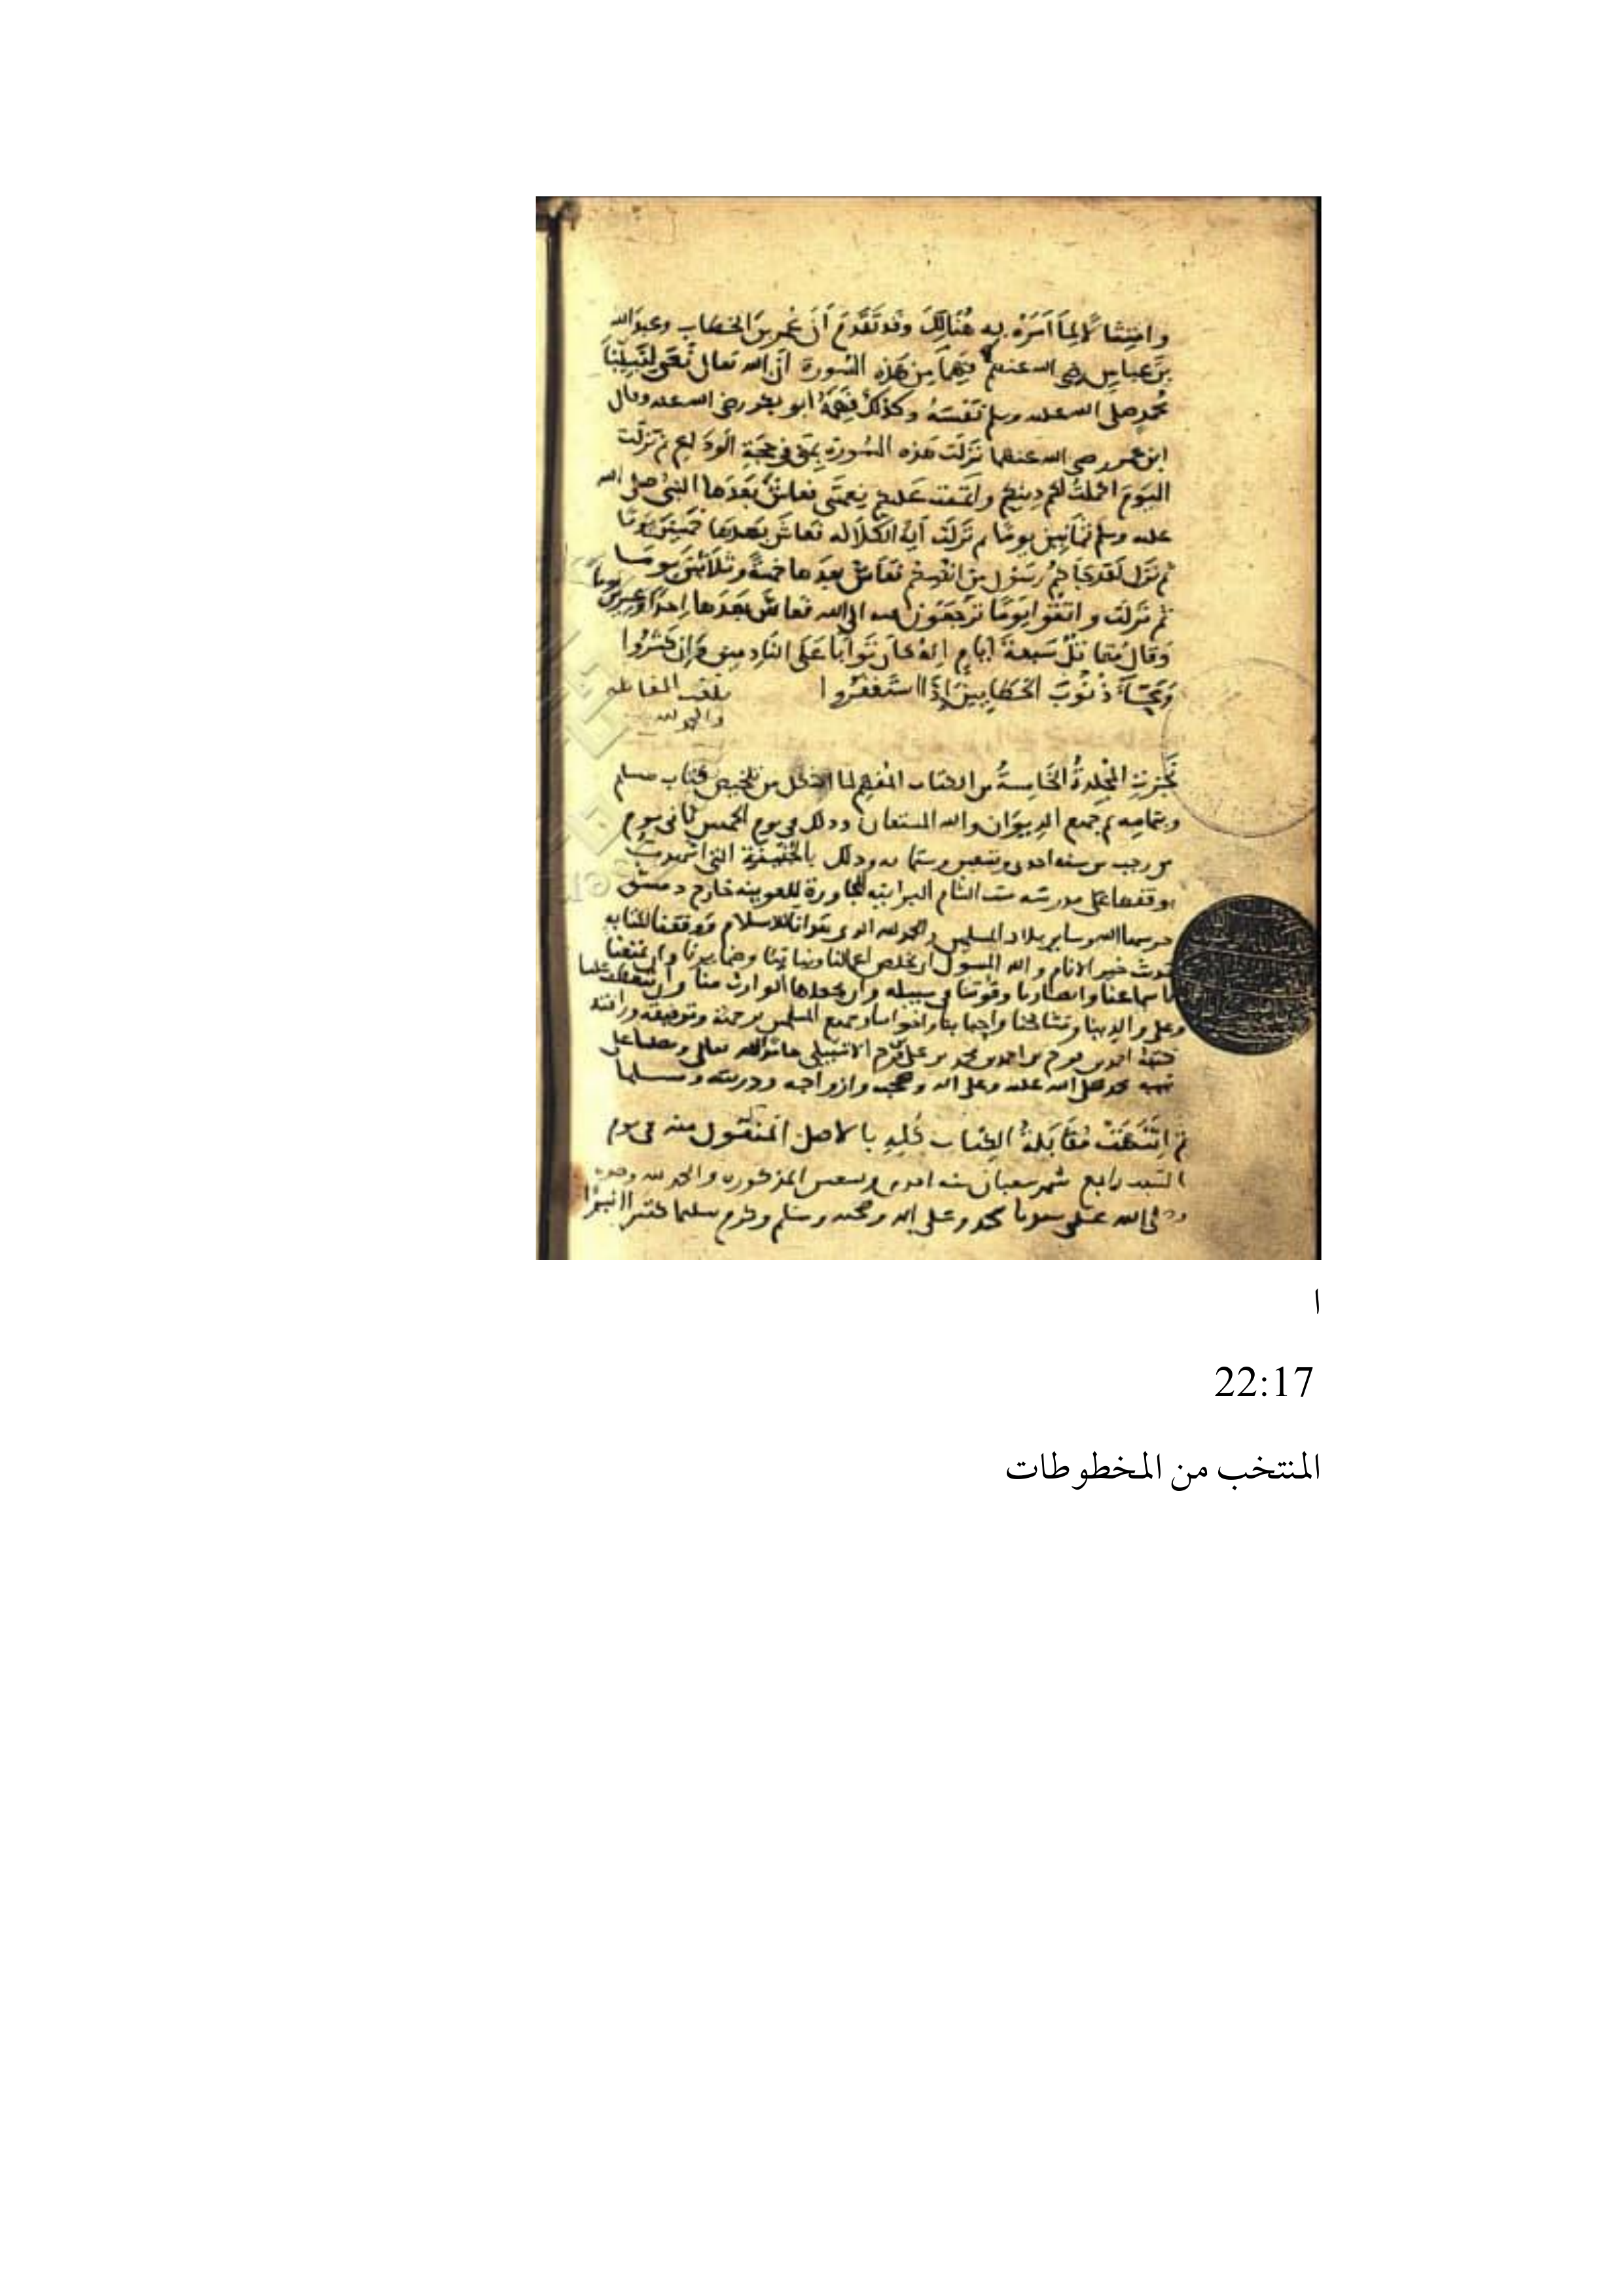 وامتثالا لما أمره به هنالك وقد تقدم أن عمر بن الخطاب وعبد الله
بن عباس رضي الله عنهم فهما من هذه السورة أن الله تعالى نعى لنبينا
محمد صلى الله عليه وسلم نفسه وكذلك فهمه أبو بكر رضي الله عنه وقال
ابن عمر رضي الله عنهما نزلت هذه السورة بمنى في حجة الوداع ثم نزلت
اليوم أكملت لكم دينكم وأتممت عليكم نعمتي فعاش بعدها النبي صلى الله
عليه وسلم ثمانين يوما ثم نزلت آية الكلالة فعاش بعدها خمسين يوما
ثم نزل لقد جاءكم رسول من أنفسكم فعاش بعدها خمسة وثلاثين يوما
ثم نزلت واتقوا يوما ترجعون فيه إلى الله فعاش بعدها إحدا وعشرين يوما
وقال مقاتل سبعة أيام إنه كان توابا على النادمين وإن كثروا
ومحاء ذنوب الخطايين إذا استغفروا
بلغت المقابلة
والحمد لله
نجزت المجلدة الخامسة من الكتاب المفهم لما أشكل من تلخيص كتاب مسلم
وبتمامه تم جميع الديوان والله المستعان وذلك في يوم الخميس ثاني يوم
من رجب من سنة احدى وتسعين وستمائة وذلك
بوقفها على مدرسة ست الشام البرانية المجاورة للعوينة خارج دمشق
حرسها الله وسائر بلاد المسلمين والحمد لله الذي للاسلام ووفقنا لكتابة
حديث خير الانام والله المسؤل ان يخلص اعمالنا ونياتنا وان يمتعنا
باسماعنا وابصارنا وقوتنا في سبيله وان يجعلها الوارث منا وان
وعلى والدينا ومشائخنا واحبابنا واخواننا وجميع المسلمين برحمته وتوفيقه ورافته
كتبه احمد بن فرح بن احمد بن محمد بن الاشبيلي الله تعالى
نبيه محمد صلى الله عليه وعلى اله وصحبه وازواجه وذريته وسلم
ثم انتهت مقابلة الكتاب كله بالاصل المنقول منه في يوم
السبت رابع شهر شعبان سنة احدى وتسعين المذكورة والحمد لله وحده
وصلى الله على سيدنا محمد وعلى اله وصحبه وسلم وكرم تسليما كثيرا
ا
22:17
المنتخب من المخطوطات